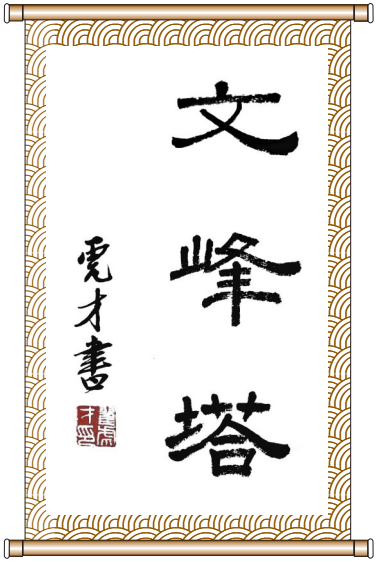 文峰塔
虎才書